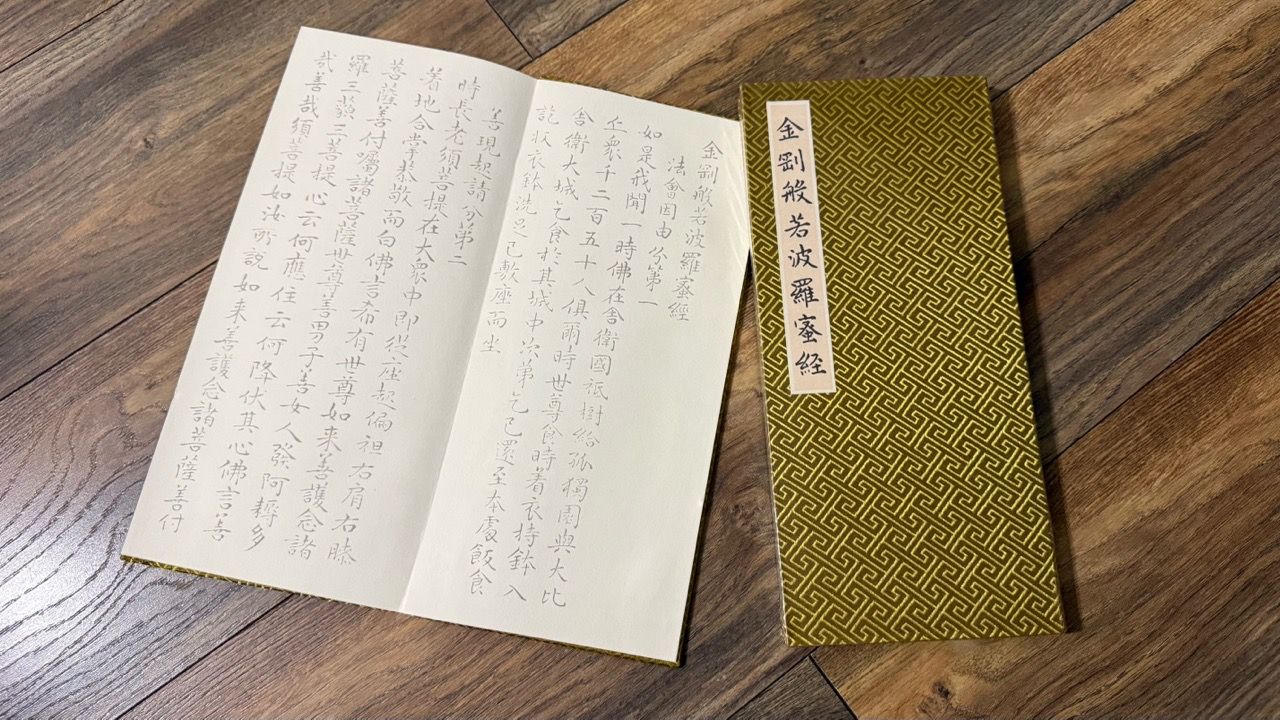 金剛般若波羅蜜経
金剛般若波羅蜜經
法會因由分第一
如是我聞一時佛在舎衛國祇樹給孤獨園與大比
丘衆千二百五十人俱爾時世尊食時着衣持鉢入
舎衛大城乞食於其城中次第乞已還至本處飯食
訖収衣鉢洗足已敷座而坐
善現起請分第二
時長老須菩提在大衆中即從座起偏袒右肩右膝
着地合掌恭敬而白佛言希有世尊如来善護念諸
菩薩善付嘱諸菩薩世尊善男子善女人發阿耨多
羅三藐三菩提心云何應住云何降伏其心佛言善
哉善哉須菩提如汝所説如来善護念諸菩薩善付